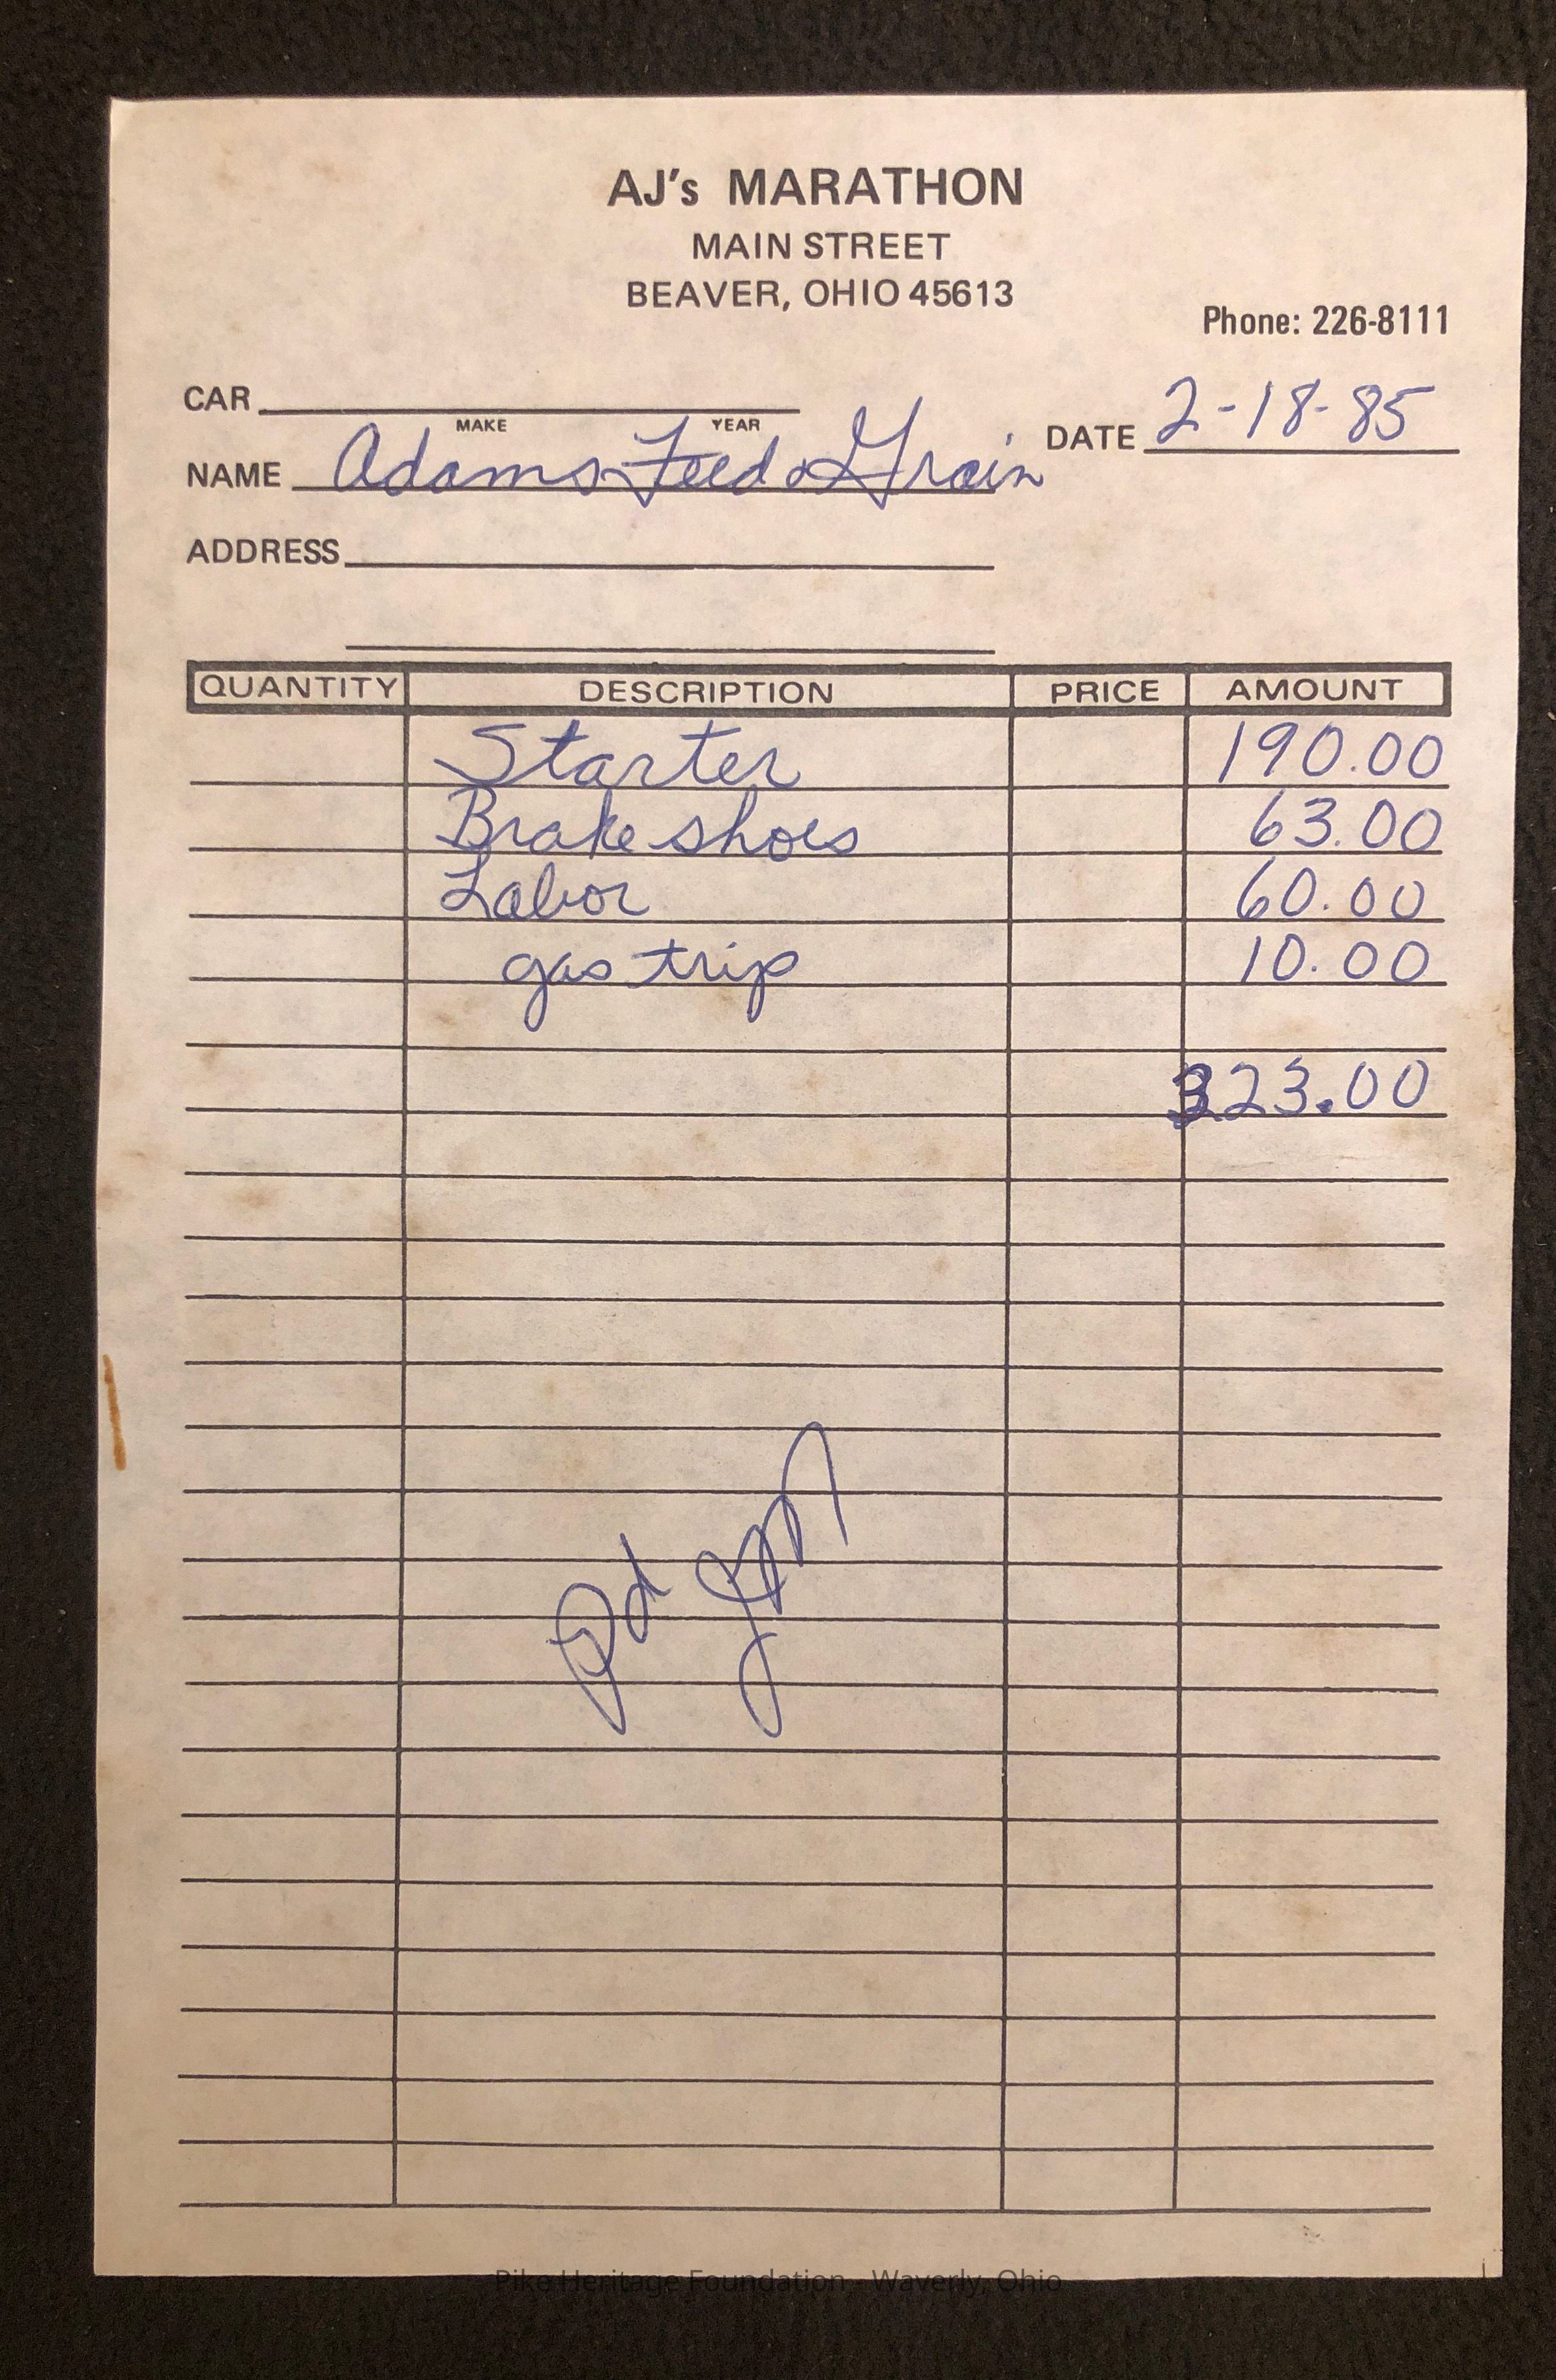 AJ's MARATHON
MAIN STREET
BEAVER, OHIO 45613
Phone: 226-8111
CAR
MAKE YEAR
DATE 2-18-85
NAME Adams Feed & Grain
ADDRESS
QUANTITY DESCRIPTION PRICE AMOUNT
Starter 190.00
Brake shoes 63.00
Labor 60.00
gas trip 10.00
323.00
Pd
Pike Heritage Foundation - Waverly, Ohio